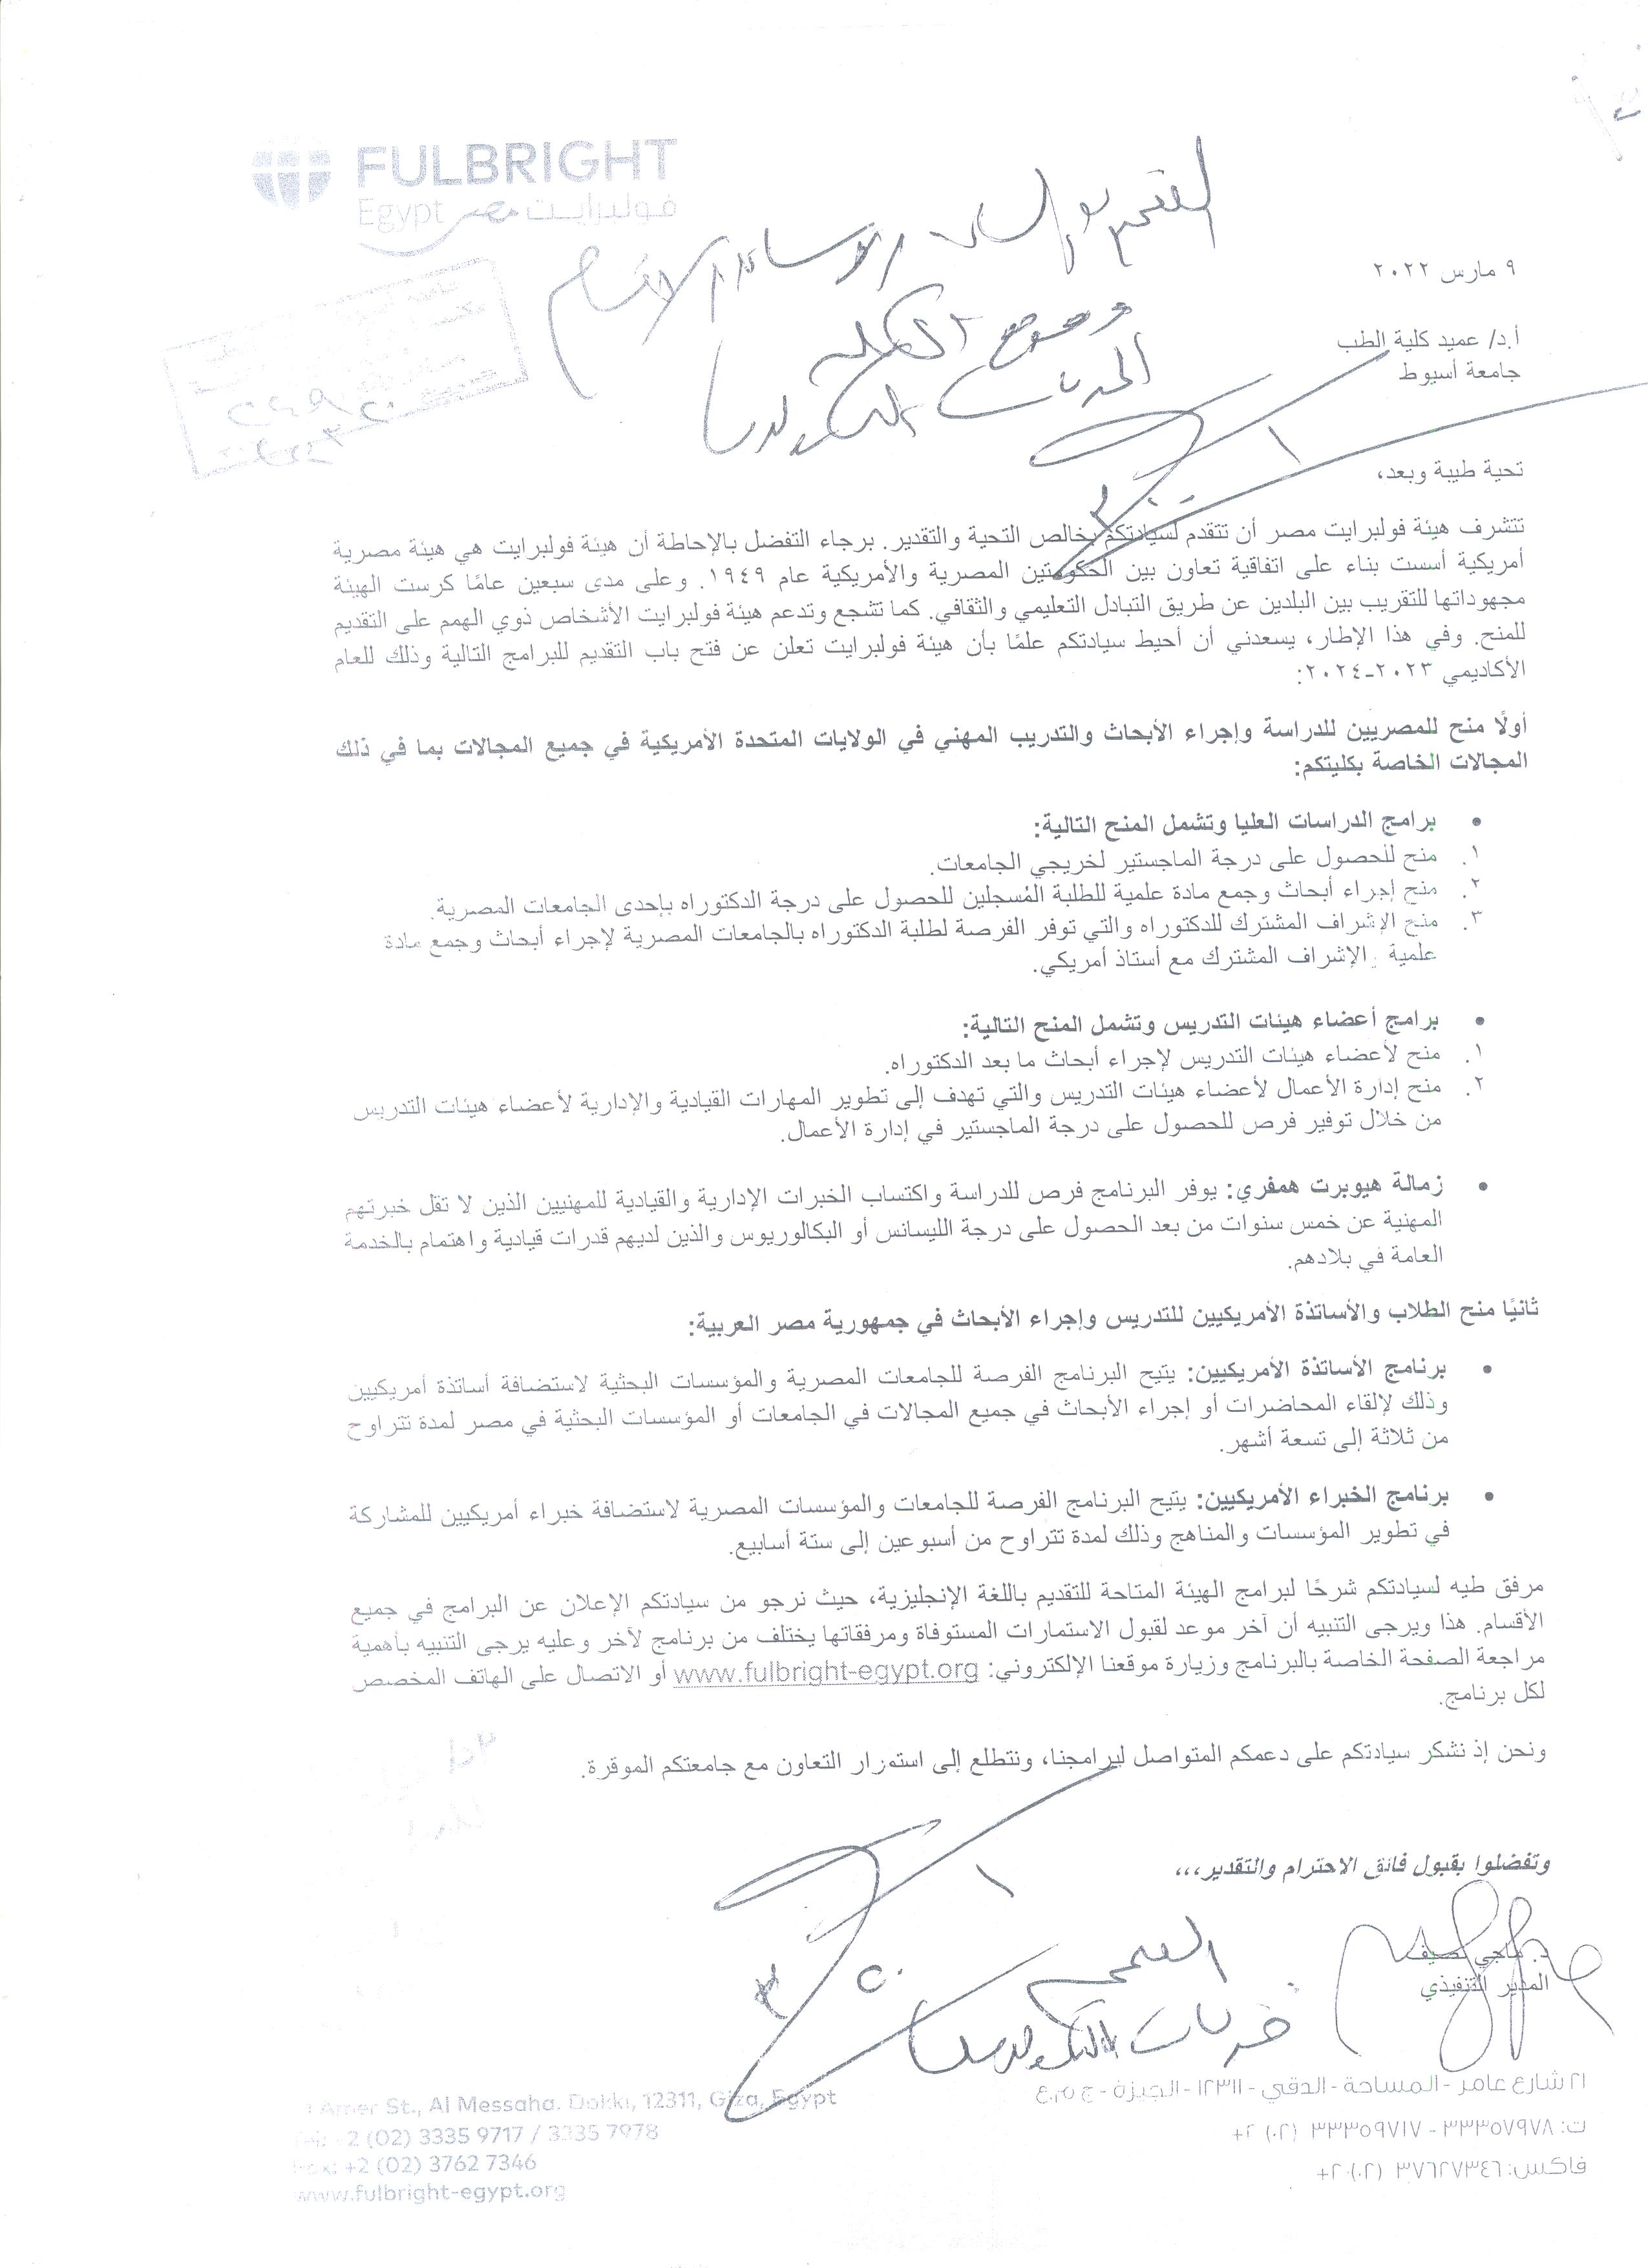 FULBRIGHT
Egypt فولبرايت مصر
٩ مارس ٢٠٢٢
أ.د/ عميد كلية الطب
جامعة أسيوط
تحية طيبة وبعد،
تتشرف هيئة فولبرايت مصر أن تتقدم لسيادتكم بخالص التحية والتقدير. برجاء التفضل بالإحاطة أن هيئة فولبرايت هي هيئة مصرية
أمريكية أسست بناء على اتفاقية تعاون بين الحكومتين المصرية والأمريكية عام ١٩٤٩. وعلى مدى سبعين عامًا كرست الهيئة
مجهوداتها للتقريب بين البلدين عن طريق التبادل التعليمي والثقافي. كما تشجع وتدعم هيئة فولبرايت الأشخاص ذوي الهمم على التقديم
للمنح. وفي هذا الإطار، يسعدني أن أحيط سيادتكم علمًا بأن هيئة فولبرايت تعلن عن فتح باب التقديم للبرامج التالية وذلك للعام
الأكاديمي ٢٠٢٣-٢٠٢٤:
أولًا منح للمصريين للدراسة وإجراء الأبحاث والتدريب المهني في الولايات المتحدة الأمريكية في جميع المجالات بما في ذلك
المجالات الخاصة بكليتكم:
• برامج الدراسات العليا وتشمل المنح التالية:
١. منح للحصول على درجة الماجستير لخريجي الجامعات.
٢. منح إجراء أبحاث وجمع مادة علمية للطلبة المُسجلين للحصول على درجة الدكتوراه بإحدى الجامعات المصرية.
٣. منح الإشراف المشترك للدكتوراه والتي توفر الفرصة لطلبة الدكتوراه بالجامعات المصرية لإجراء أبحاث وجمع مادة
علمية الإشراف المشترك مع أستاذ أمريكي.
• برامج أعضاء هيئات التدريس وتشمل المنح التالية:
١. منح لأعضاء هيئات التدريس لإجراء أبحاث ما بعد الدكتوراه.
٢. منح إدارة الأعمال لأعضاء هيئات التدريس والتي تهدف إلى تطوير المهارات القيادية والإدارية لأعضاء هيئات التدريس
من خلال توفير فرص للحصول على درجة الماجستير في إدارة الأعمال.
• زمالة هيوبرت همفري: يوفر البرنامج فرص للدراسة واكتساب الخبرات الإدارية والقيادية للمهنيين الذين لا تقل خبرتهم
المهنية عن خمس سنوات من بعد الحصول على درجة الليسانس أو البكالوريوس والذين لديهم قدرات قيادية واهتمام بالخدمة
العامة في بلادهم.
ثانيًا منح الطلاب والأساتذة الأمريكيين للتدريس وإجراء الأبحاث في جمهورية مصر العربية:
• برنامج الأساتذة الأمريكيين: يتيح البرنامج الفرصة للجامعات المصرية والمؤسسات البحثية لاستضافة أساتذة أمريكيين
وذلك لإلقاء المحاضرات أو إجراء الأبحاث في جميع المجالات في الجامعات أو المؤسسات البحثية في مصر لمدة تتراوح
من ثلاثة إلى تسعة أشهر.
• برنامج الخبراء الأمريكيين: يتيح البرنامج الفرصة للجامعات والمؤسسات المصرية لاستضافة خبراء أمريكيين للمشاركة
في تطوير المؤسسات والمناهج وذلك لمدة تتراوح من أسبوعين إلى ستة أسابيع.
مرفق طيه لسيادتكم شرحًا لبرامج الهيئة المتاحة للتقديم باللغة الإنجليزية، حيث نرجو من سيادتكم الإعلان عن البرامج في جميع
الأقسام. هذا ويرجى التنبيه أن آخر موعد لقبول الاستمارات المستوفاة ومرفقاتها يختلف من برنامج لآخر وعليه يرجى التنبيه بأهمية
مراجعة الصفحة الخاصة بالبرنامج وزيارة موقعنا الإلكتروني: www.fulbright-egypt.org أو الاتصال على الهاتف المخصص
لكل برنامج.
ونحن إذ نشكر سيادتكم على دعمكم المتواصل لبرامجنا، ونتطلع إلى استمرار التعاون مع جامعتكم الموقرة.
وتفضلوا بقبول فائق الاحترام والتقدير،،،
المدير التنفيذي
٢١ شارع عامر - المساحة - الدقي - ١٢٣١١ - الجيزة - ج.م.ع
ت: ٣٣٣٥٧٩٧٨ - ٣٣٣٥٩٧١٧ (٠٢) ٢+
فاكس: ٣٧٦٢٧٣٤٦ (٠٢) ٢+
Amer St., Al Messaha, Dokki, 12311, Giza, Egypt
Tel: +2 (02) 3335 9717 / 3335 7978
Fax: +2 (02) 3762 7346
www.fulbright-egypt.org